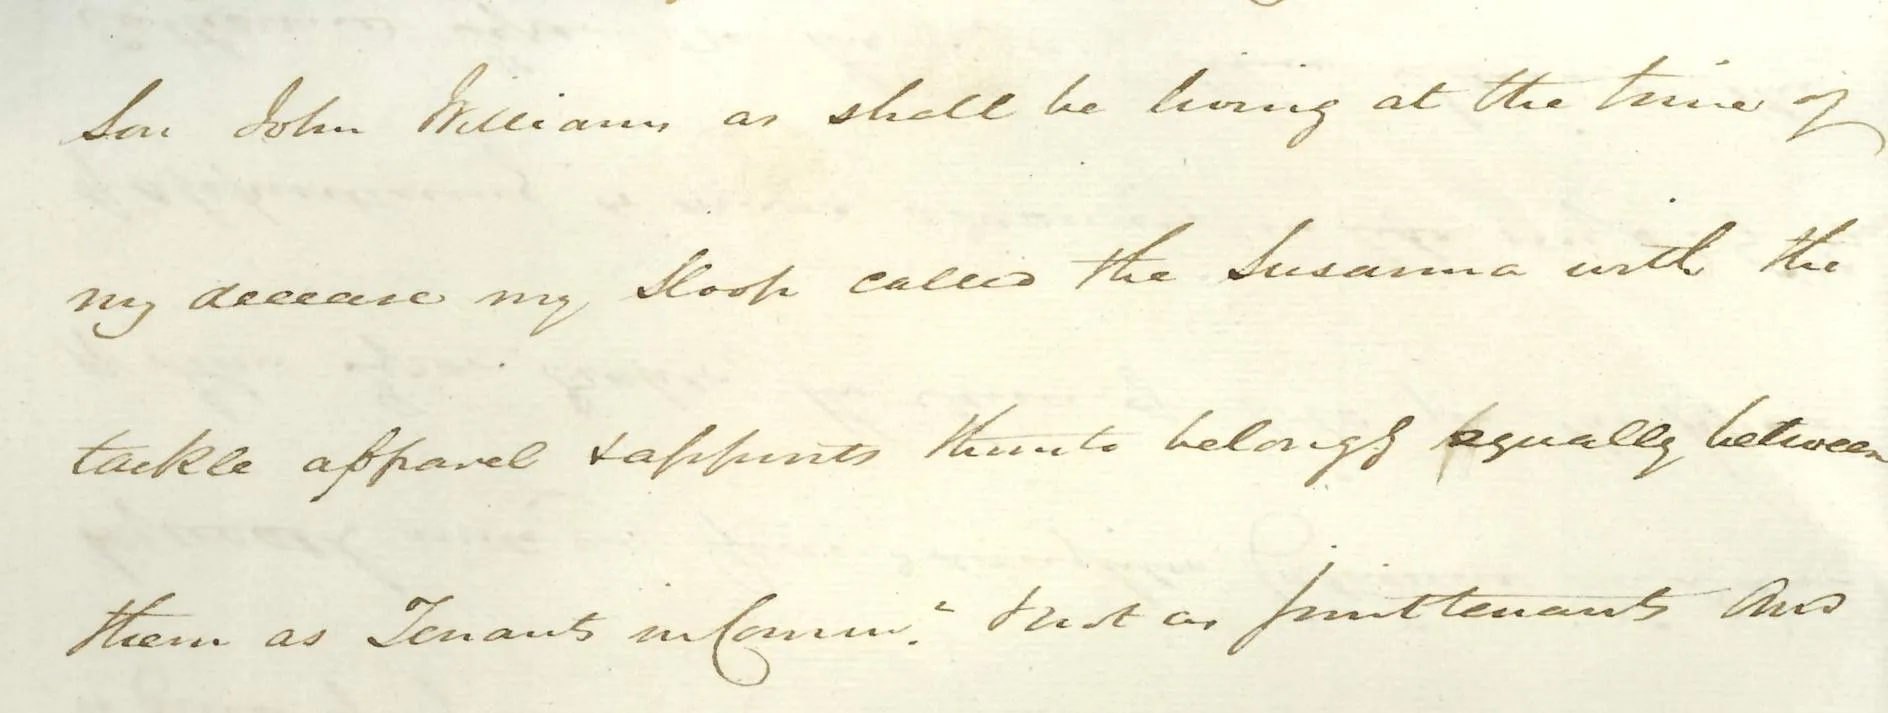 Son John Williams as shall be living at the time of
my decease my Sloop called the Susanna with the
tackle apparel & appurts thereunto belongg equally between
them as Tenants in Commn. & not as jointtenants And